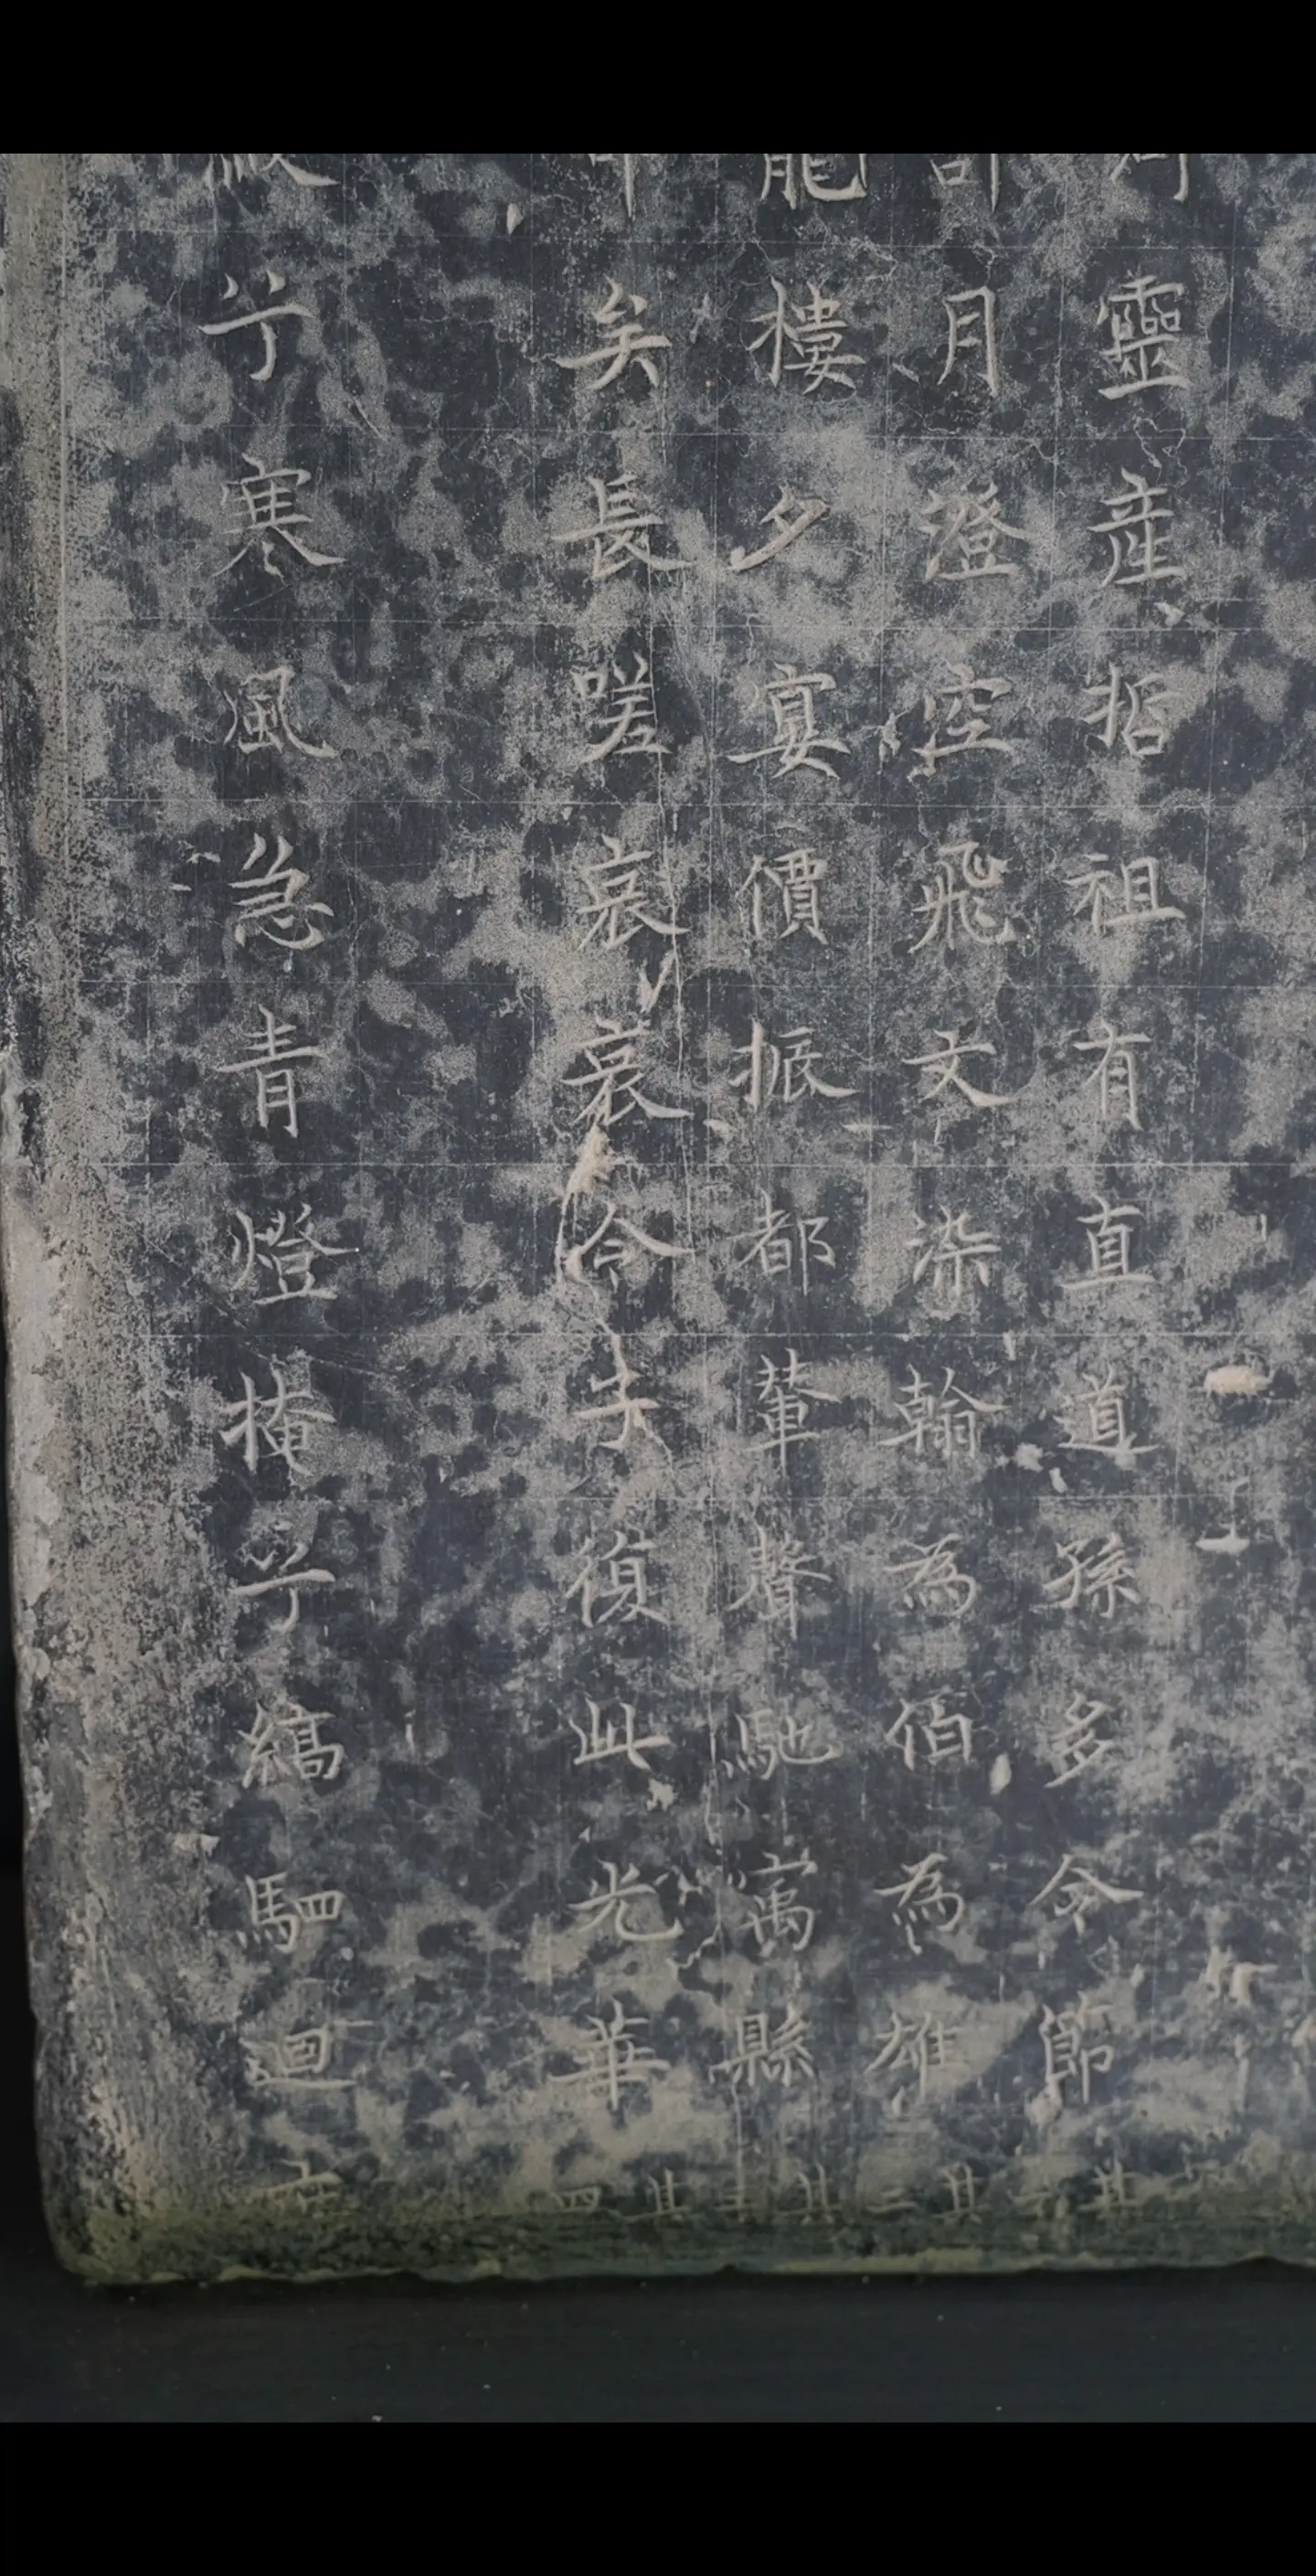 靈産哲祖有直道孫多令節其一
月澄空飛文染翰為伯為雄其二
龍樓夕宴價振都輦聲馳寓縣其三
矣長嗟哀哀令夫復此光華其四
兮寒風急青燈掩兮縞駟迴